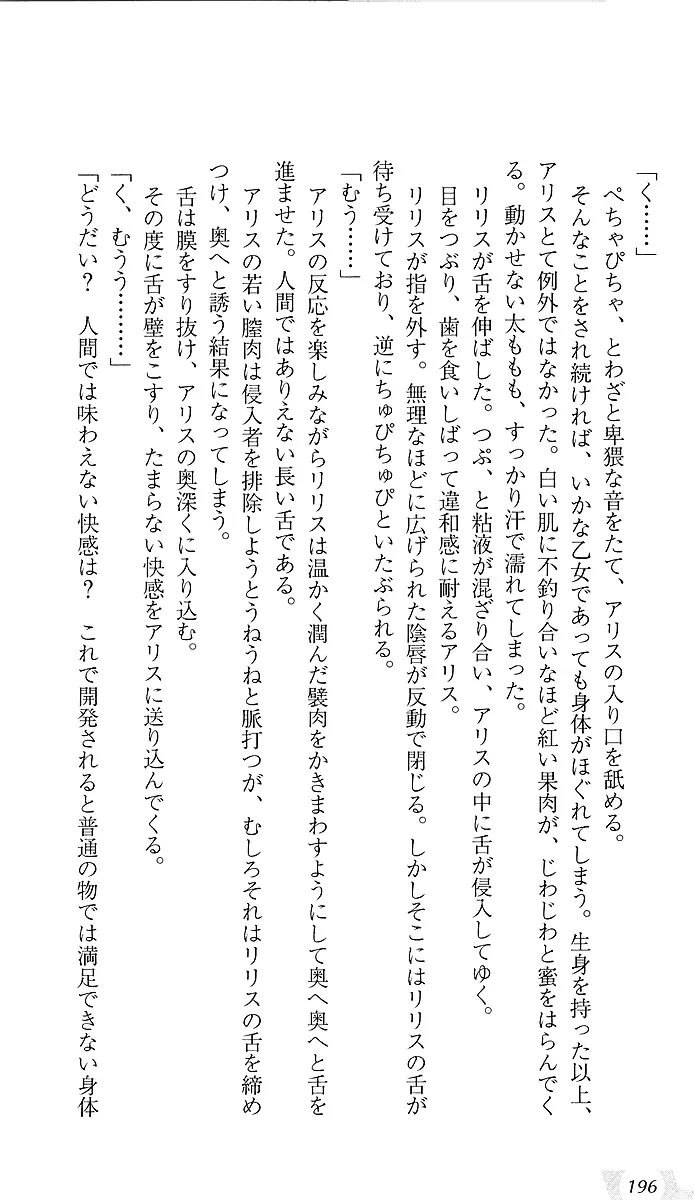 「く……」
ぺちゃぴちゃ、とわざと卑猥な音をたて、アリスの入り口を舐める。
そんなことをされ続ければ、いかな乙女であっても身体がほぐれてしまう。生身を持った以上、
アリスとて例外ではなかった。白い肌に不釣り合いなほど紅い果肉が、じわじわと蜜をはらんでく
る。動かせない太ももも、すっかり汗で濡れてしまった。
リリスが舌を伸ばした。つぷ、と粘液が混ざり合い、アリスの中に舌が侵入してゆく。
目をつぶり、歯を食いしばって違和感に耐えるアリス。
リリスが指を外す。無理なほどに広げられた陰唇が反動で閉じる。しかしそこにはリリスの舌が
待ち受けており、逆にちゅぴちゅぴといたぶられる。
「むう……」
アリスの反応を楽しみながらリリスは温かく潤んだ襞肉をかきまわすようにして奥へ奥へと舌を
進ませた。人間ではありえない長い舌である。
アリスの若い膣肉は侵入者を排除しようとうねうねと脈打つが、むしろそれはリリスの舌を締め
つけ、奥へと誘う結果になってしまう。
舌は膜をすり抜け、アリスの奥深くに入り込む。
その度に舌が壁をこすり、たまらない快感をアリスに送り込んでくる。
「く、むうう………」
「どうだい？　人間では味わえない快感は？　これで開発されると普通の物では満足できない身体
196